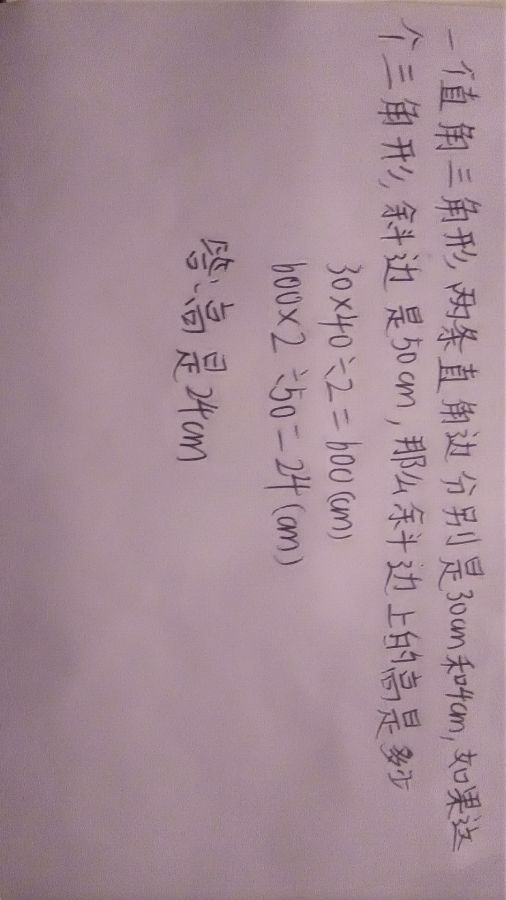 一个直角三角形,两条直角边分别是30cm和4cm,如果这
个三角形,斜边是50cm,那么斜边上的高是多少
30×40÷2=600(cm)
600×2÷50=24(cm)
答:高是24cm